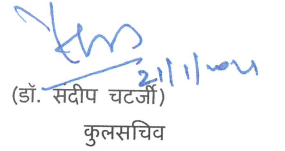 21/1/2021
(डॉ. संदीप चटर्जी)
कुलसचिव